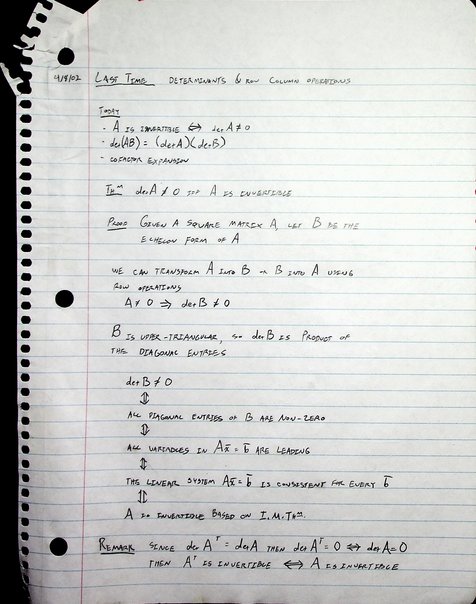 4/8/02 LAST TIME DETERMINANTS & ROW COLUMN OPERATIONS
TODAY
- A IS INVERTIBLE ⇔ det A ≠ 0
- det(AB) = (det A)(det B)
- COFACTOR EXPANSION
THᵐ det A ≠ 0 IFF A IS INVERTIBLE
PROOF GIVEN A SQUARE MATRIX A, LET B BE THE
ECHELON FORM OF A
WE CAN TRANSFORM A INTO B OR B INTO A USING
ROW OPERATIONS
A ≠ 0 ⇒ det B ≠ 0
B IS UPPER-TRIANGULAR, SO det B IS PRODUCT OF
THE DIAGONAL ENTRIES
det B ≠ 0
⇕
ALL DIAGONAL ENTRIES OF B ARE NON-ZERO
⇕
ALL VARIABLES IN Ax̄ = b̄ ARE LEADING
⇕
THE LINEAR SYSTEM Ax̄ = b̄ IS CONSISTENT FOR EVERY b̄
⇕
A IS INVERTIBLE BASED ON I.M.THᵐ.
REMARK SINCE det Aᵀ = det A THEN det Aᵀ = 0 ⇔ det A = 0
THEN Aᵀ IS INVERTIBLE ⇔ A IS INVERTIBLE